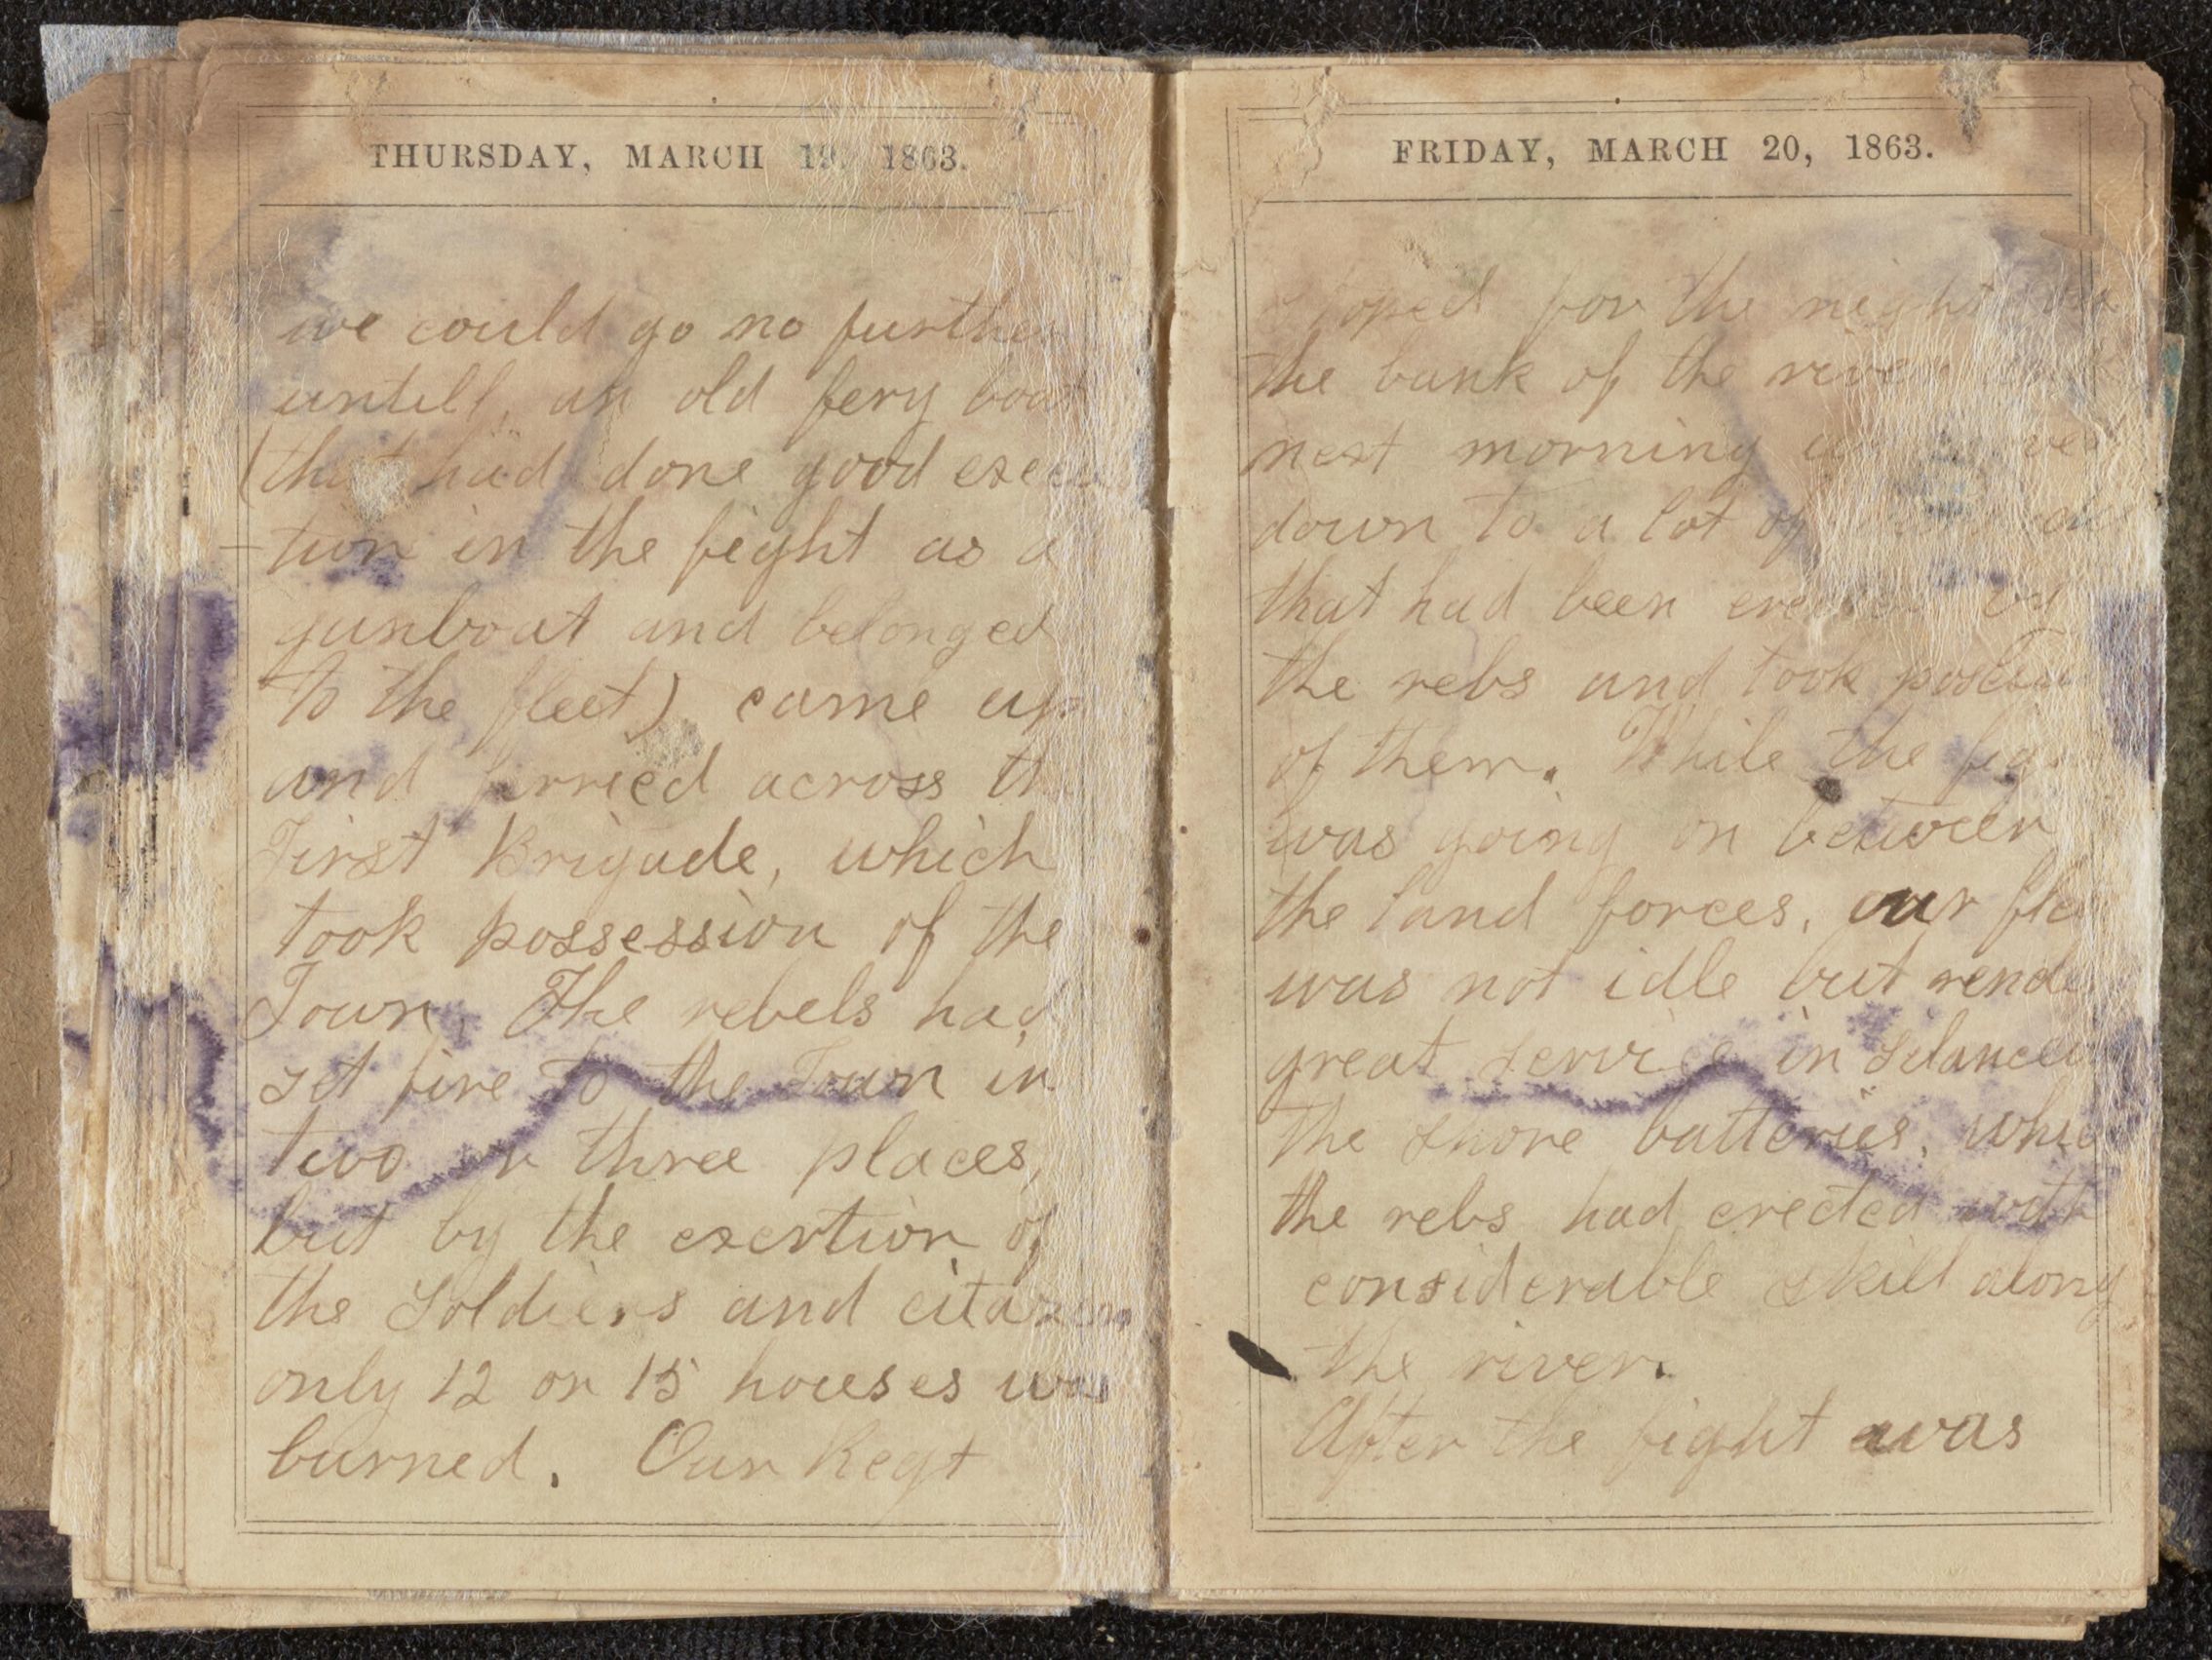 THURSDAY, MARCH 19. 1863.
we could go no further
untill, an old fery boat
(that had done good execu
tion in the feight as a
gunboat and belonged
to the fleet) came up
and ferried across the
First Brigade, which
took possession of the
Town, The rebels had
set fire to the Town in
two or three places,
but by the exertion of
the soldiers and citazens
only 12 or 15 houses was
burned. Our Regt
FRIDAY, MARCH 20, 1863.
stoped for the night on
the bank of the river
next morning
down to a lot of
that had been erected by
the rebs and took
of them. While the
was going on between
the land forces, our
was not idle but
great service in
the shore batteries,
the rebs had erected with
considerable skill along
the river.
After the fight was